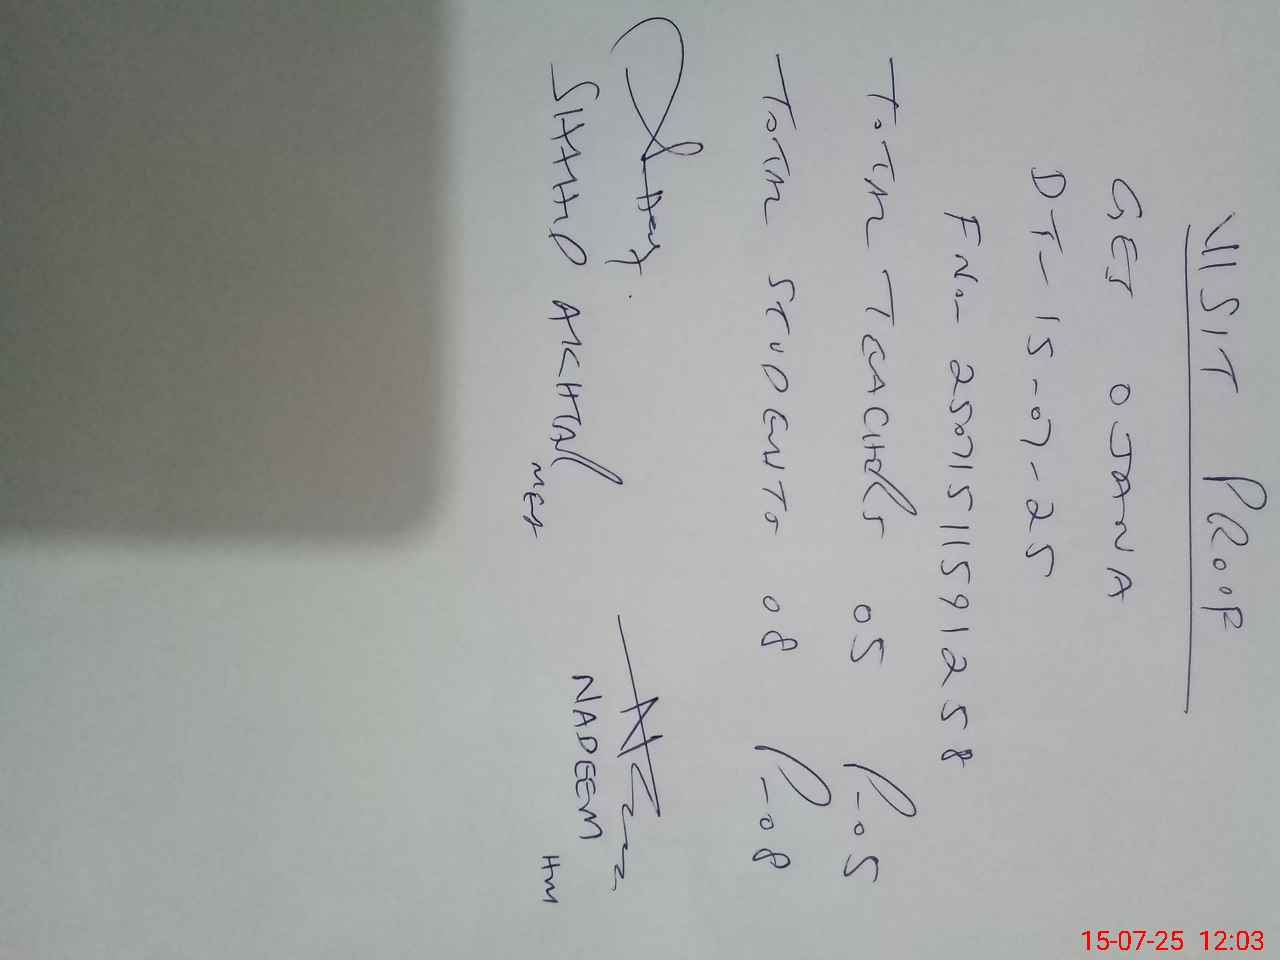 VISIT PROOF
GES OJANA
DT- 15-07-25
FNo- 25071511591258
TOTAL TEACHERS 05 P-05
TOTAL STUDENTS 08 P-08
SHAHID AKHTAR
NADEEM
HM
15-07-25 12:03